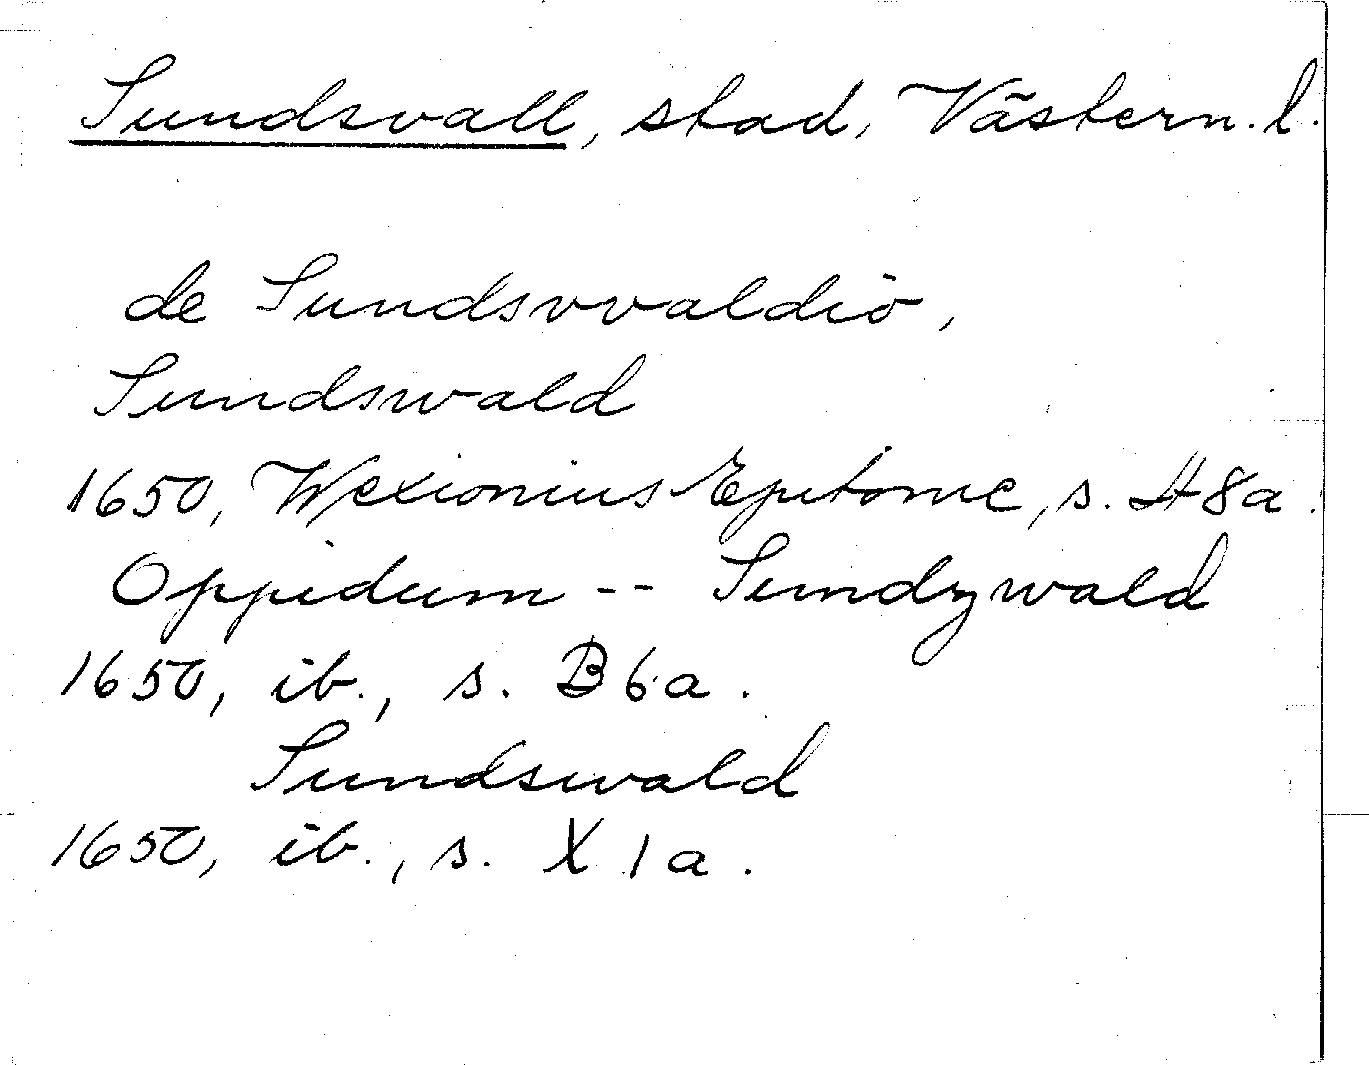 Sundsvall, stad, Västern. l.
de Sundsvvaldio,
Sundswald
1650, Wexionius Epitome, s. H8a.
Oppidum -- Sundzwald
1650, ib., s. B6a.
Sundswald
1650, ib., s. X1a.